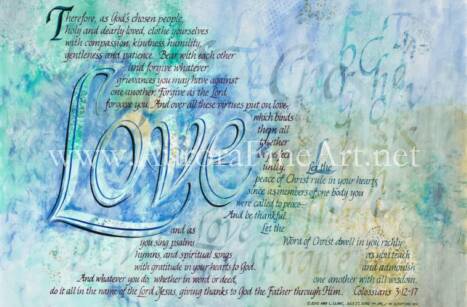 Therefore, as God's chosen people,
holy and dearly loved, clothe yourselves
with compassion, kindness, humility,
gentleness and patience. Bear with each other
and forgive whatever
grievances you may have against
one another. Forgive as the Lord
forgave you. And over all these virtues put on love,
which binds
them all
together
Love
unity. Let the
peace of Christ rule in your hearts
since as members of one body you
were called to peace—
And be thankful.
Let the
Word of Christ dwell in you richly
as you teach
and admonish
one another with all wisdom,
and as
you sing psalms
hymns, and spiritual songs
with gratitude in your hearts to God.
And whatever you do, whether in word or deed,
do it all in the name of the Lord Jesus, giving thanks to God the Father through Him. Colossians 3:12-17